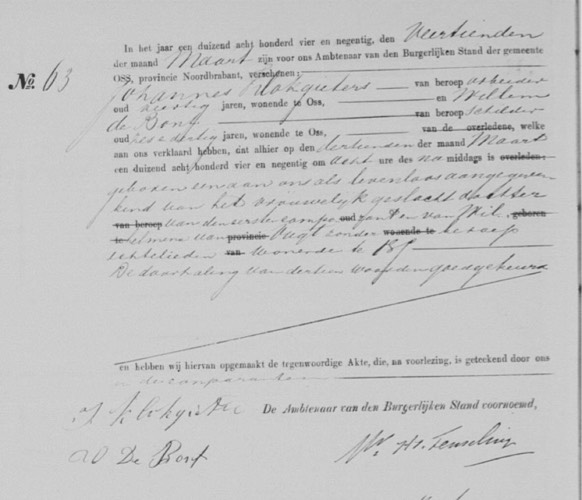 In het jaar een duizend acht honderd vier en negentig, den Veertienden
der maand Maart zijn voor ons Ambtenaar van den Burgerlijken Stand der gemeente
OSS, provincie Noordbrabant, verschenen:
No. 63
Johannes Klokgieters van beroep arbeider
oud veertig jaren, wonende te Oss, en Willem
de Bont van beroep schilder
oud jaren, wonende te Oss, van de overledene, welke
aan ons verklaard hebben, dat alhier op den dertienden der maand Maart
een duizend acht honderd vier en negentig om acht ure des namiddags is overleden:
geboren een aan ons als levenloos aangegeven
kind van het vrouwelijk geslacht dochter
van beroep van den eersten comparant oud en van geboren
te provincie Vugt zonder wonende te beroep
echtelieden van wonende te
De doorhaling van dertien woorden goedgekeurd
en hebben wij hiervan opgemaakt de tegenwoordige Akte, die, na voorlezing, is geteekend door ons
en de comparanten
J Klokgieters De Ambtenaar van den Burgerlijken Stand voornoemd,
W De Bont